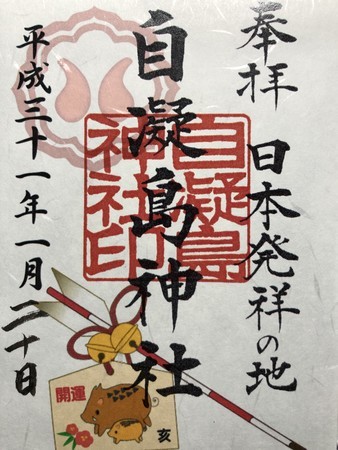 奉拝
日本発祥の地
自凝島神社
自凝島
神社印
平成三十一年一月二十日
開運
亥